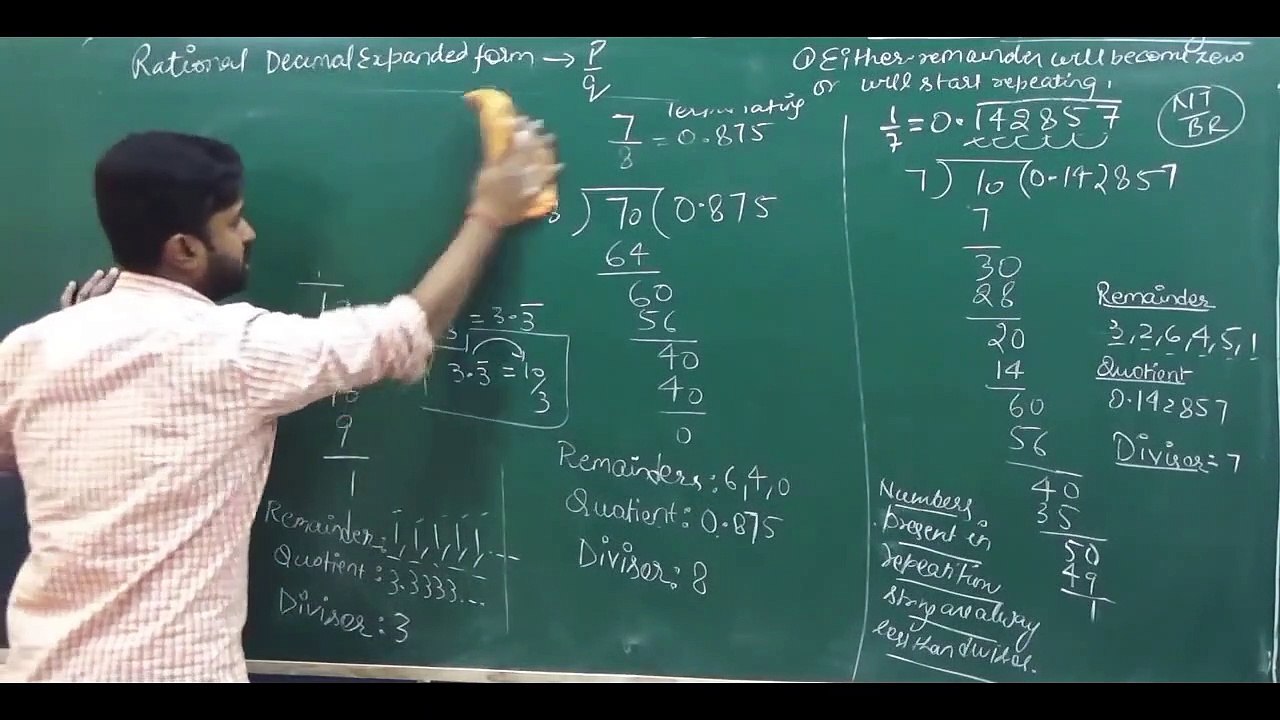 Rational Decimal Expanded form → P/q
7/8 = 0.875
Terminating
) 70 ( 0.875
64
60
56
40
40
0
Remainders: 6, 4, 0
Quotient: 0.875
Divisor: 8
= 3.3̅
3.3̅ = 10/3
9
1
Remainder: 1, 1, 1, 1, 1, ...
Quotient: 3.3333...
Divisor: 3
① Either remainder will become zero
or will start repeating.
1/7 = 0.1̅4̅2̅8̅5̅7̅
NT/BR
7 ) 10 ( 0.142857
7
30
28
20
14
60
56
40
35
50
49
1
Remainder
3, 2, 6, 4, 5, 1
Quotient
0.142857
Divisor = 7
Numbers
Present in
repeatition
string are alway